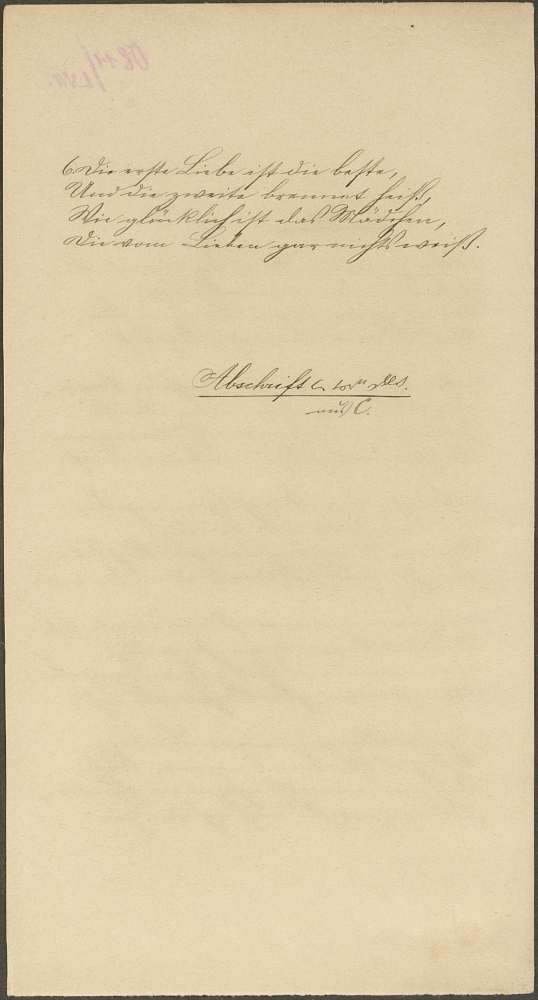 6. Die erste Liebe ist die beste,
Und die zweite brennet heiß,
Wie glücklich ist das Mädchen,
Die vom Lieben gar nichts weiß.
Abschrift
aus C.